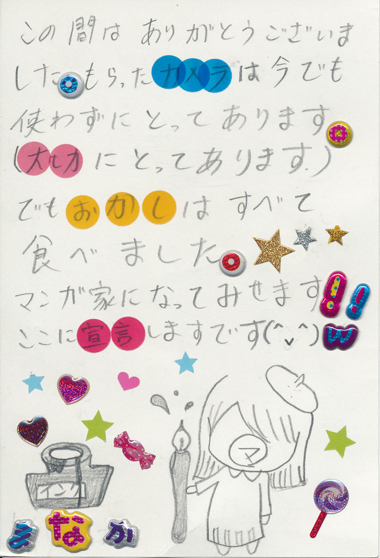 この間は ありがとうございま
した。もらったカメラは今でも
使わずにとってあります。
(大切にとってあります。)
でもおかしはすべて
食べました。
マンガ家になってみせます!!
ここに宣言しますです(^ᴗ^)w
インク
きなか